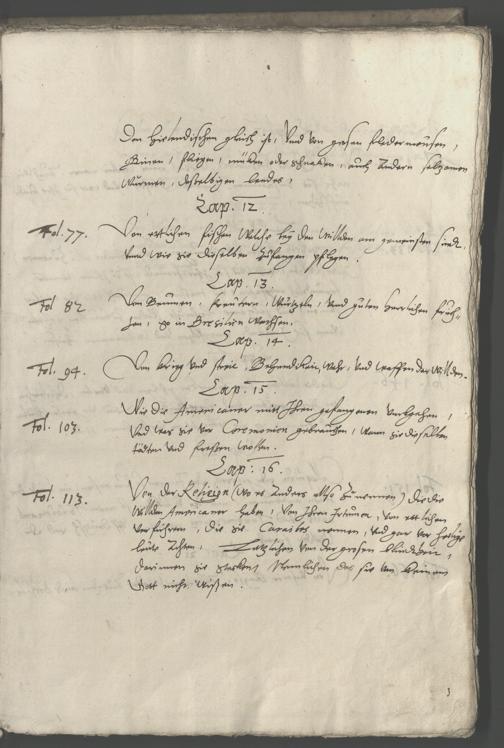 Den hielendischen gleich ist, Und von grosen fledermeusen,
Bienen, fliegen, mücken oder schnacken, auch andern selzamen
Würmen, desselbigen landes,
Cap. 12.
Fol. 77. Von ettlichen fischen Welche bey den Wilden am gemeinsten sindt,
Und wie sie dieselben zufangen pflegen.
Cap. 13.
Fol 82 Von Beumen, Kreuttern, Wurtzeln, Und guten herrlichen früch-
ten, so in Bresilien Wachsen.
Cap. 14.
Fol. 94. Von krieg Und streit, Wehr, Und Waffen der Wilden.
Cap. 15.
Fol. 103. Wie die Americaner mitt Ihren gefangenen Umbgehen,
Und was sie vor Ceremonien gebrauchen, Wann sie dieselben
tödten Und fressen wollen.
Cap. 16.
Fol. 113. Von der Religion (Wo es anders also zunennen) die die
Wilden Americaner haben, Von Ihren Irtumen, Von ettlichen
verfürern, die sie Caraibes nennen, Und gar vor heilige
leütte achten, Letzlichen Von der grosen blindtheit,
darinnen sie stecken, Nemlichen das sie Von keinem
Gott nicht Wissen.
3